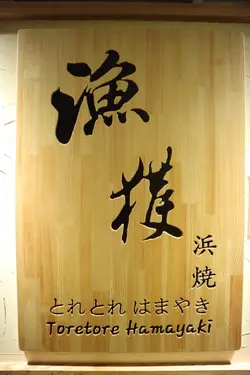 漁
獲
浜焼
とれとれ はまやき
Toretore Hamayaki